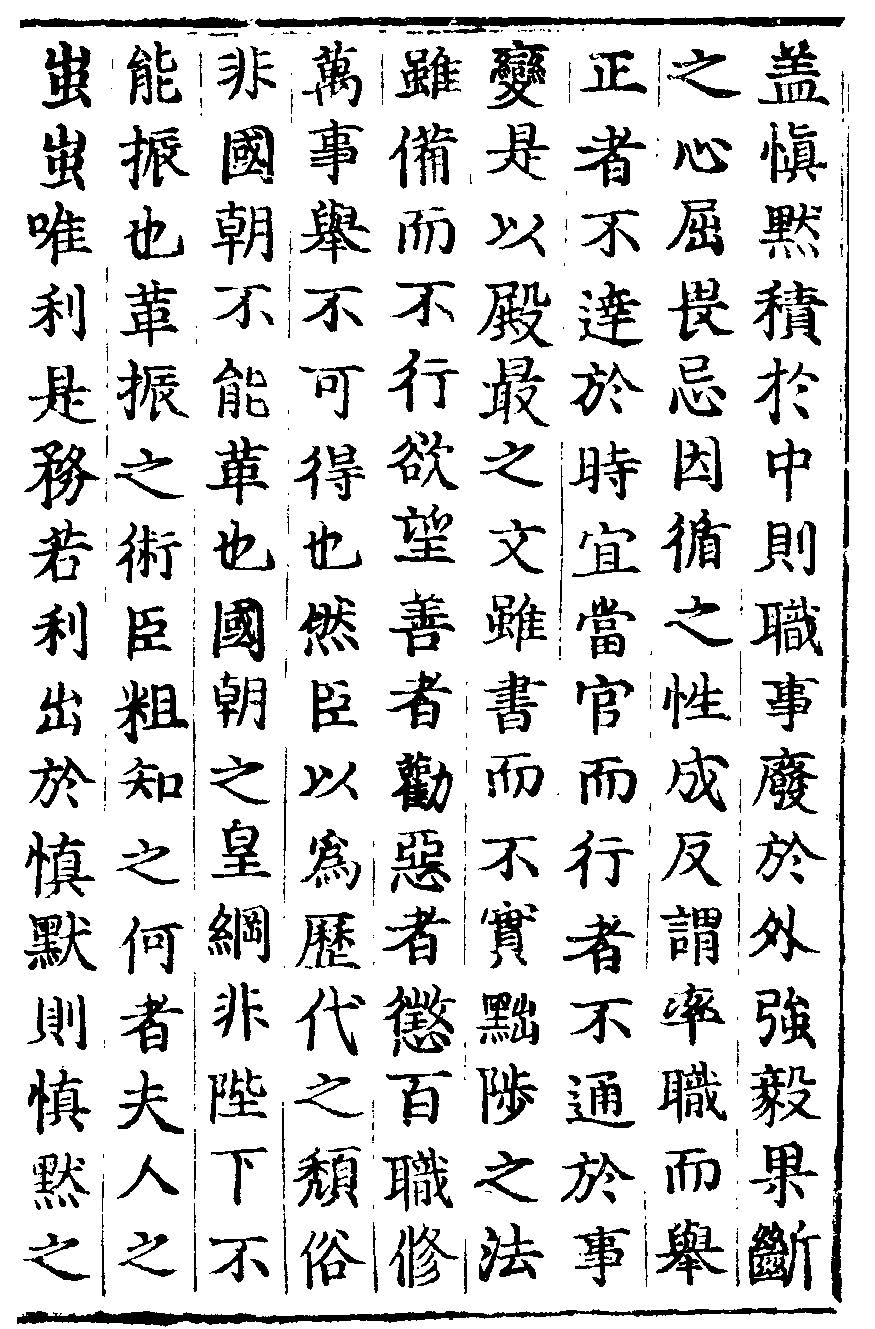 盖慎黙積扵中則職事廢於外強毅果斷
之心屈畏忌因循之性成反謂率職而舉
正者不達於時宜當官而行者不通於事
變是以殿最之文雖書而不實黜陟之法
雖備而不行欲望善者勸惡者懲百職修
萬事舉不可得也然臣以爲歷代之頽俗
非國朝不能革也國朝之皇綱非陛下不
能振也革振之術臣粗知之何者夫人之
蚩蚩唯利是務若利出於慎默則慎黙之